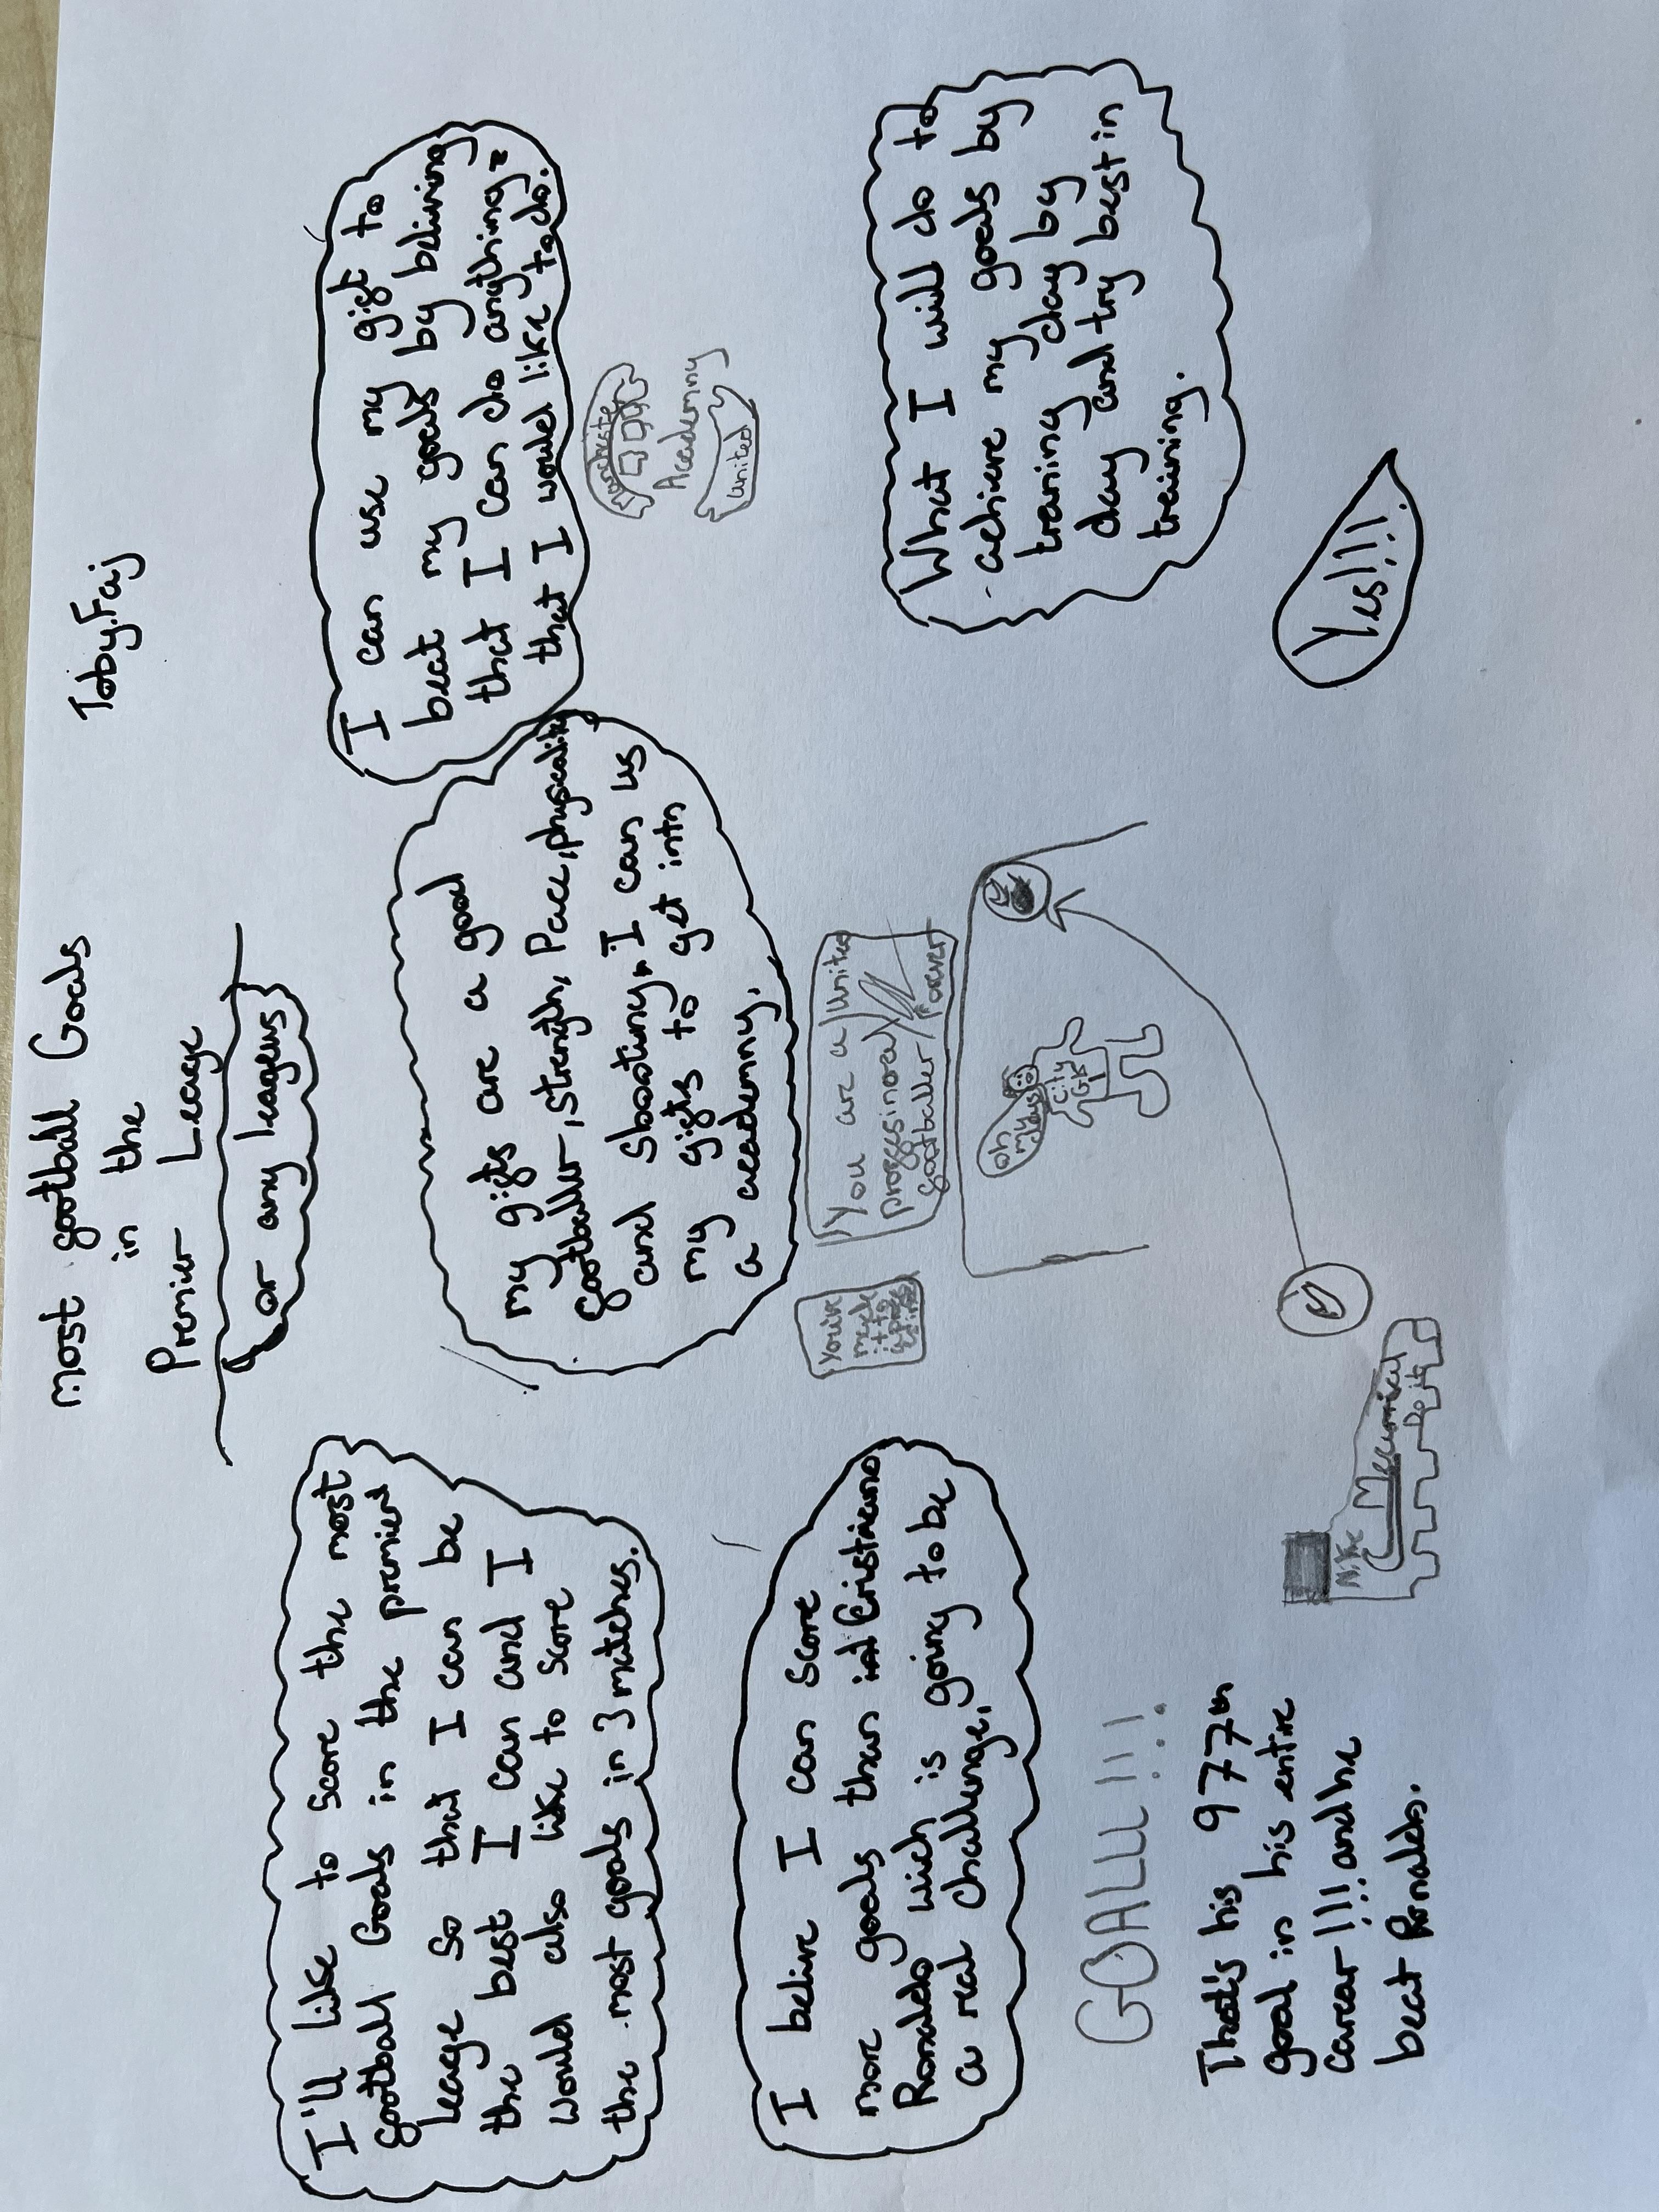 most football Goals
in the
Premier Leage
or any leageus
Toby.Faj
I'll like to score the most
football Goals in the premier
leage so that I can be
the best I can and I
would also like to score
the most goals in 3 matches.
my gifts are a good
footballer, strength, Pace, physicality
and shooting. I can us
my gifts to get into
a academny.
I can use my gift to
beat my goals by beliving
that I can do anything
that I would like to do.
Manchester
Academny
United
I belive I can score
more goals than Cristiano
Ronaldo wich is going to be
a real challenge.
You'er
made
it to
You are a
proffesinoal
footballer
United
Forever
What I will do to
achive my goals by
traning day by
day and try best in
training.
oh
my
days
City
GK
GOALLL!!!.
That's his 977th
goal in his entire
carear!!! and he
beat Ronaldo.
NIKE
Mecurical
Do it
Yes!!!!